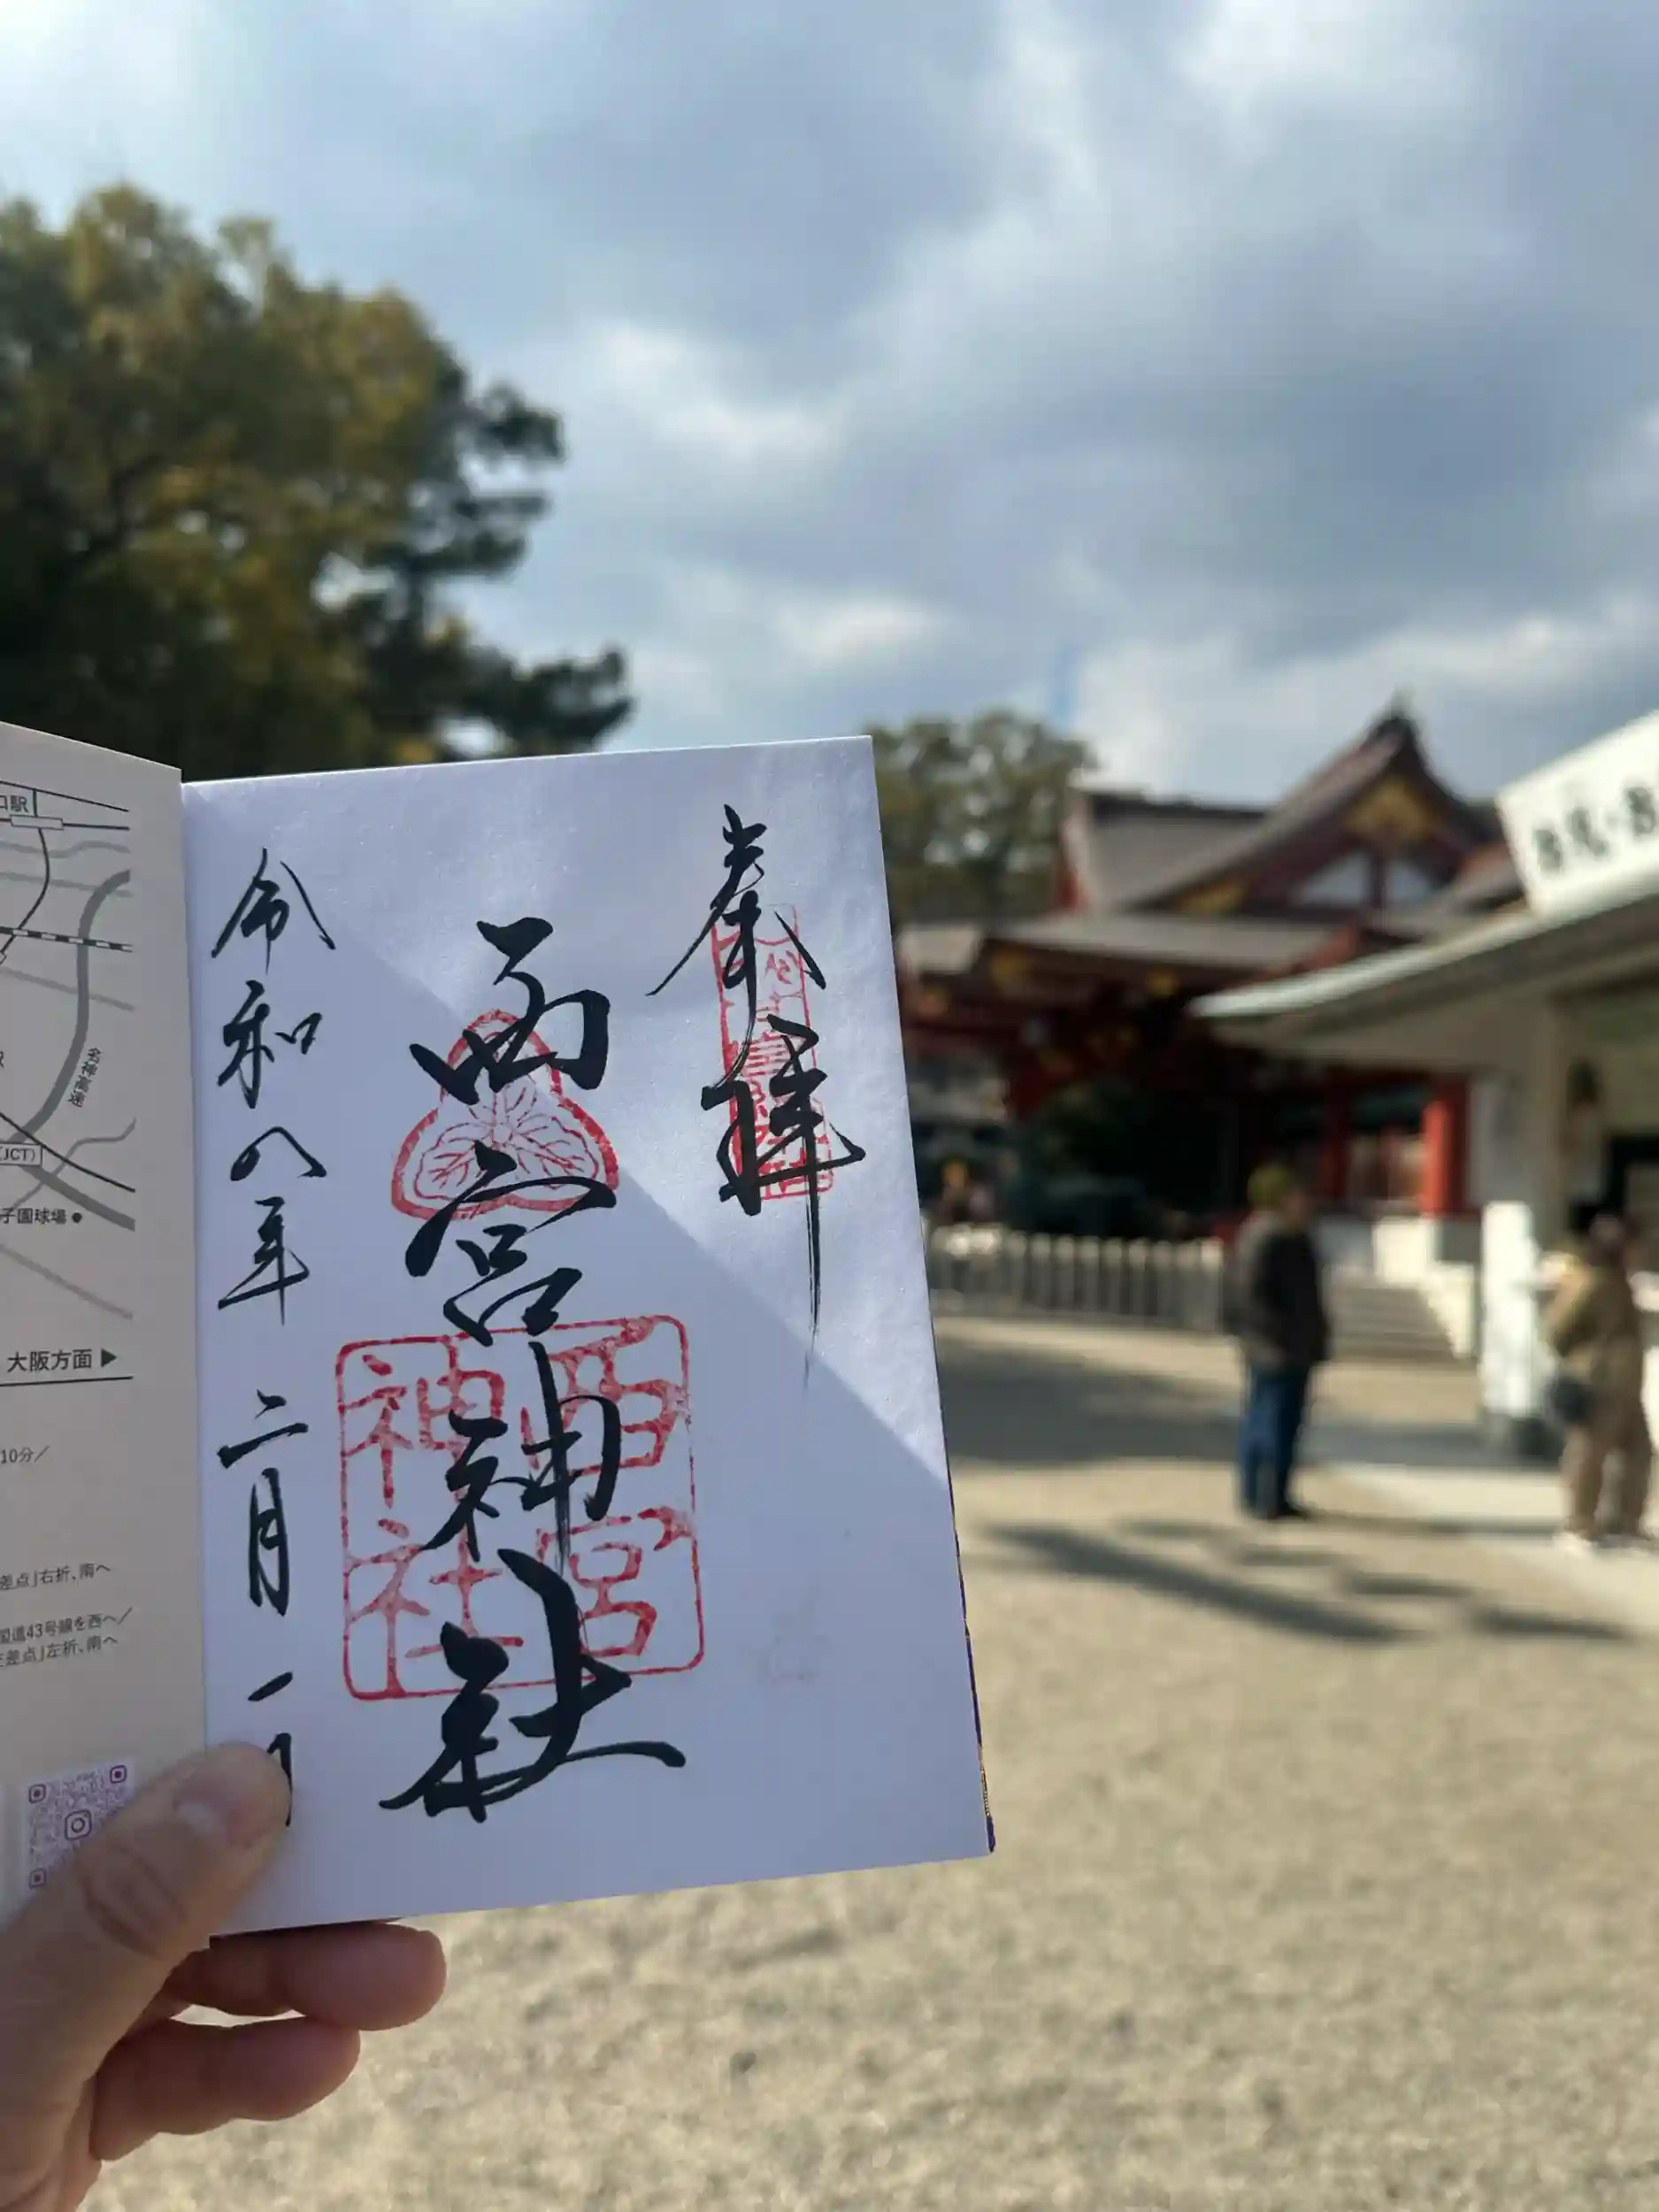 奉拝
西宮神社
西宮
神社
令和八年二月一日
口駅
名神高速
JCT)
子園球場
大阪方面
10分/
差点」右折、南へ
国道43号線を西へ/
差点」左折、南へ